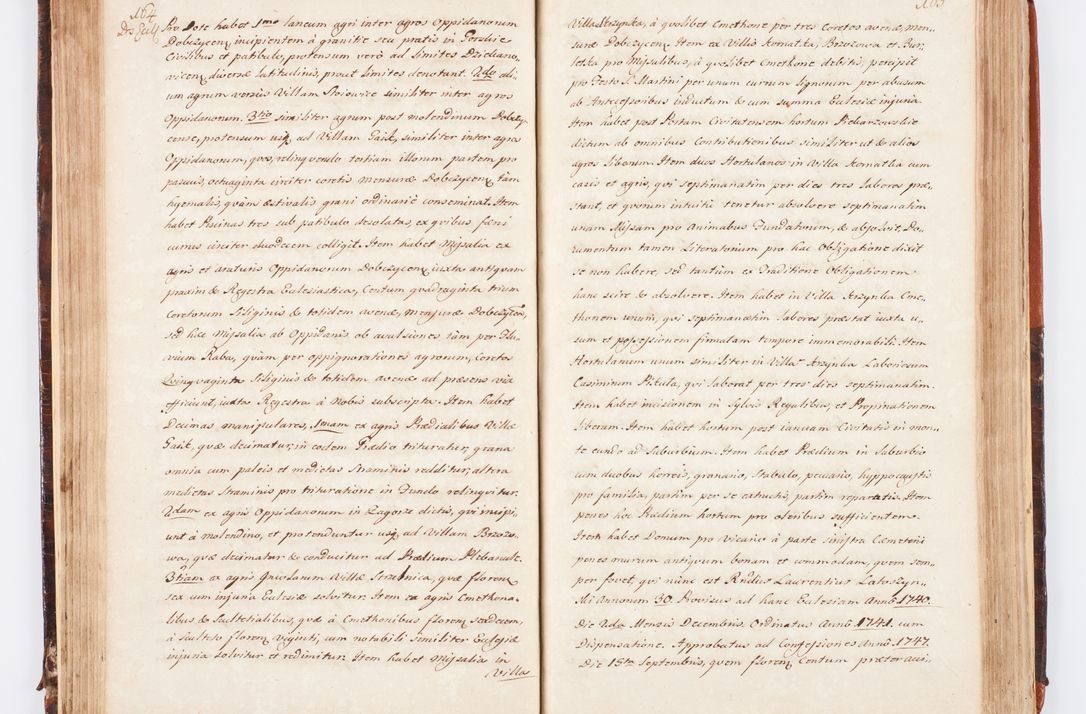 164
Pro Dote habet 1mo laneum agri inter agros Oppidanorum
Dobczycen, incipientem à granitie seu pratis in Perschie
Civilibus et patibulo, protensum verò ad limites Dziekano„
vicen, diversæ latitudinis, prout limites denotant. 2do ali„
um agrum versus Villam Stoiowice similiter inter agros
Oppidanorum. 3tio similiter agrum post molendinum Dobczy„
cense, protensum usq ad Villam Gaik, similiter inter agros
Oppidanorum, quos, relinquendo tertiam illorum partem pro
pascuis, octuaginta circiter coretis mensuræ Dobczycen, tàm
hyemalis, quàm æstivalis grani ordinariè conseminat. Item
habet Piscinas tres sub patibulo desolatas, ex quibus fæni
currus circiter duodecem colligit. Item habet Missalia ex
agris et araturis Oppidanorum Dobczycen, iuxta antiquam
praxim & Regestra Ecclesiastica, Centum quadraginta trium
Coretorum Siliginis & totidem avenæ, mensuræ Dobczycen,
sed hæc Missalia ab Oppidanis ob avulsiones tàm per Flu„
vium Raba, quàm per oppignorationes agrorum, coretos
Quinquaginta Siliginis & totidem avenæ ad præsens vix
efficiunt, iuxta Regestra à Nobis subscripta. Item habet
Decimas manipulares, 1mam ex agris Prædialibus Villæ
Gaik, quæ decimatur, in eodem Prædio trituratur, grana
omnia cum paleis et medietas Straminis redditur, altera
medietas Straminis pro trituratione in Fundo relinqvitur.
2dam ex agris Oppidanorum in Zagorze dictis, qui incipi„
unt à molendino, et protenduntur usq ad Villam Brzozo„
wa, quæ decimatur & conducitur ad Prædium Plebanale.
3tiam ex agris Incolarum Villæ Strzybnica, quæ floren
sex cum iniuria Eclesiæ solvitur. Item ex agris Cmethona„
libus & Scultetialibus, quæ à Cmethonibus floren, sexdecem,
à sculteto floren, viginti, cum notabili similiter Eclesiæ
iniuria solvitur et redimitur. Item habet Missalia in
Villa
165
Villa Krzynka, à quolibet Cmethone per tres coretos avenæ, men„
suræ Dobczycen. Item ex Villis Komatka, Brzozowa et Bur„
letka pro Missalibus, à quolibet Cmethone debitis, percipit
pro Festo S. Martini per unum currum lignorum per abusum
ab Antecessoribus inductum & cum summa Eclesiæ iniuria.
Item habet post Portam Civitatensem hortum Piekarzowskie
dictum ab omnibus Contributionibus, similiter ut & alios
agros liberum. Item duos Hortulanos in Villa Komatka cum
casis et agris, qui septimanatim per dies tres labores præ„
stant, et quorum intuitu tenetur absolvere septimanatim
unam Missam pro Animabus Fundatorum, & absolvit, Do„
cumentum tamen Literatorium pro hac Obligatione dixit
se non habere, sed tantùm ex Traditione Obligationem
hanc scire & absolvere. Item habet in Villa Krzynka Cme„
thonem unum, qui septimanatim labores præstat iuxta u„
sum et possessionem firmatam tempore immemorabili. Item
Hortulanum unum similiter in Villa Krzynka Laboriosum
Casimirum Pikula, qui laborat per tres dies septimanatim.
Item habet incisionem in Sylvis Regalibus, et Propinationem
liberam. Item habet hortum post ianuam Civitatis in mon„
te eundo ad Suburbium. Item habet Prædium in Suburbio
cum duobus horreis, granario, Stabulo, pecuario, hyppocaustis
pro familia, partim per se extructis, partim repartatis. Item
penes hoc Prædium hortum pro oleribus sufficientem.
Item habet Domum pro Vicario à parte sinistra Cæmeterii
penes murum antiquum bonam et commodam, quem sem„
per fovet, qui nunc est Rndus Laurentius Latoszyn„
ski Annorum 30. Provisus ad hanc Eclesiam Anno 1740.
Die 2da Mensis Decembris. Ordinatus Anno 1741. cum
Dispensatione. Approbatus ad Confessiones Anno 1747.
Die 1Sta Septembris, quem floren, Centum præter acci„